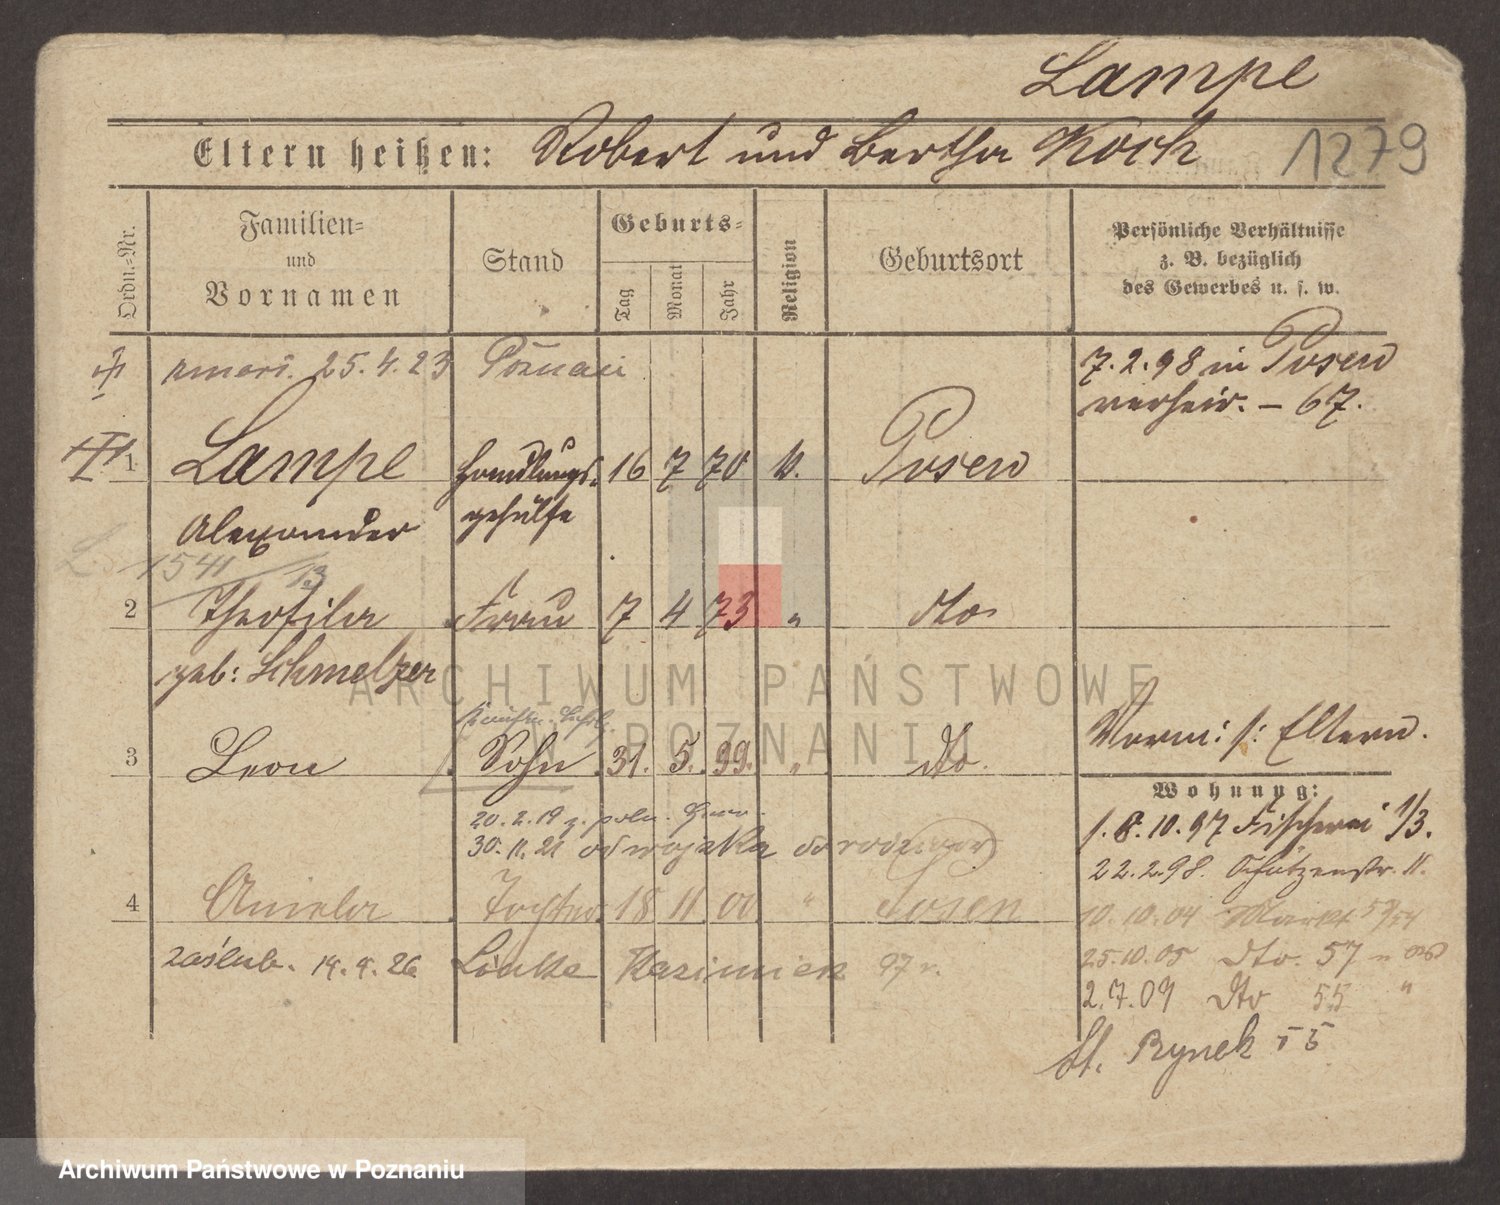 Lampe
Eltern heißen: Robert und Bertha Koch 1279
Ordn.=Nr.
Familien=
und
Vornamen
Stand
Geburts=
Tag
Monat
Jahr
Religion
Geburtsort
Persönliche Verhältnisse
z. B. bezüglich
des Gewerbes u. s. w.
25.4.23 Poznań
7.2.98 in Posen
verheir. – 67.
1 Lampe Handlungs= 16 7 70 k. Posen
Alexander gehülfe
1541
13
2 Theofila Frau 7 4 73 " dto
geb: Schmelzer
Vorm: s: Eltern.
3 Leon Sohn 31. 5. 99. " dto.
Wohnung:
20.2.19 z. poln.
8.10.97 Fischerei 1/3.
30.11.21 od wojska
22.2.98. Schützenstr. 11.
4 Aniela Tochter 18 11 00 " Posen
10.10.04 Markt
zaślub. 14.4.26 Linke Kazimierz 97 r.
25.10.05 dto. 57
2.7.09 dto 55 "
St. Rynek 55
ARCHIWUM PAŃSTWOWE
W POZNANIU
Archiwum Państwowe w Poznaniu